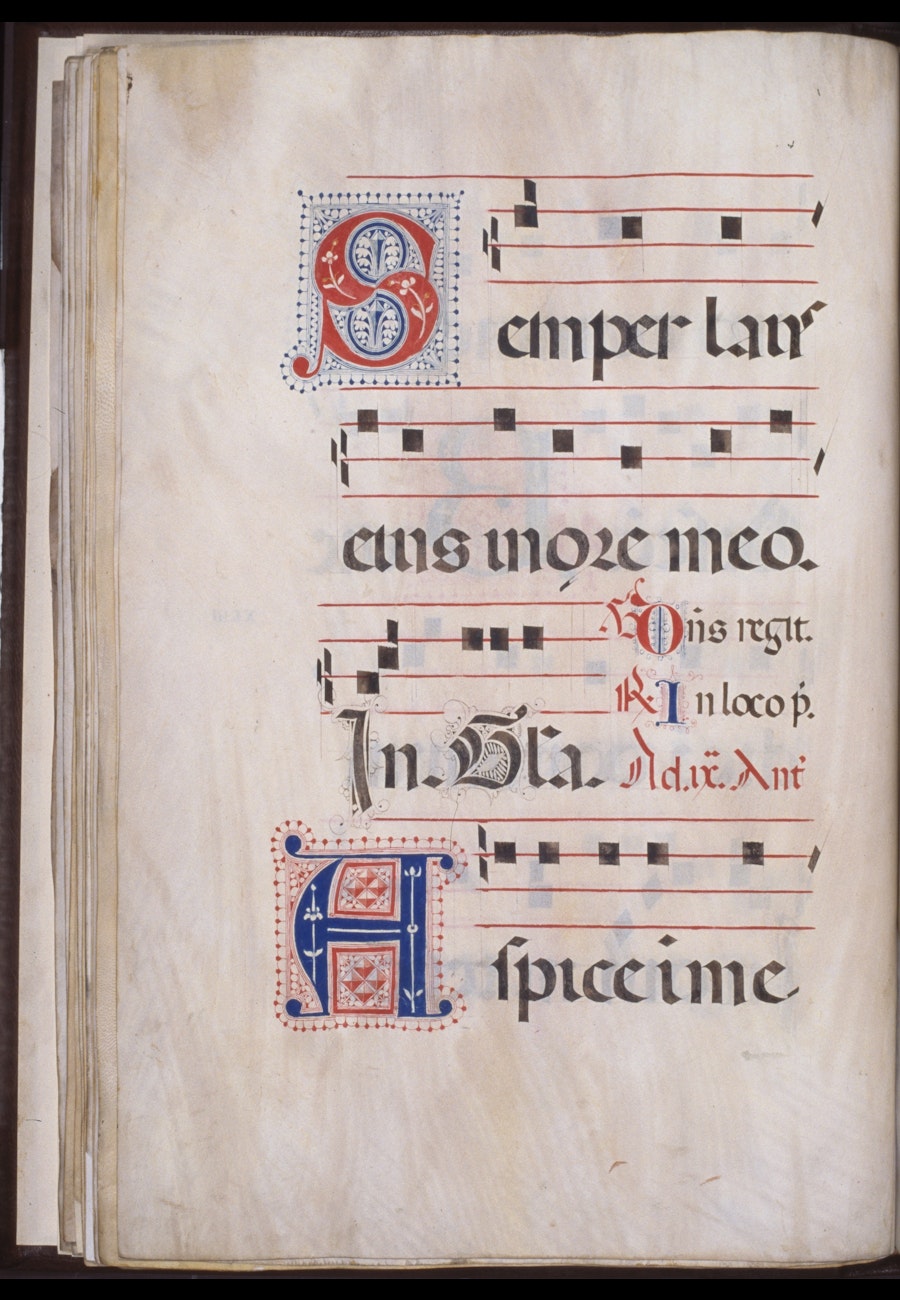 Semper laus
eius in ore meo.
V Dn̄s regit.
R. In loco p.
In. Gl̄a. Ad. ix. Ant̄
Aspice i me